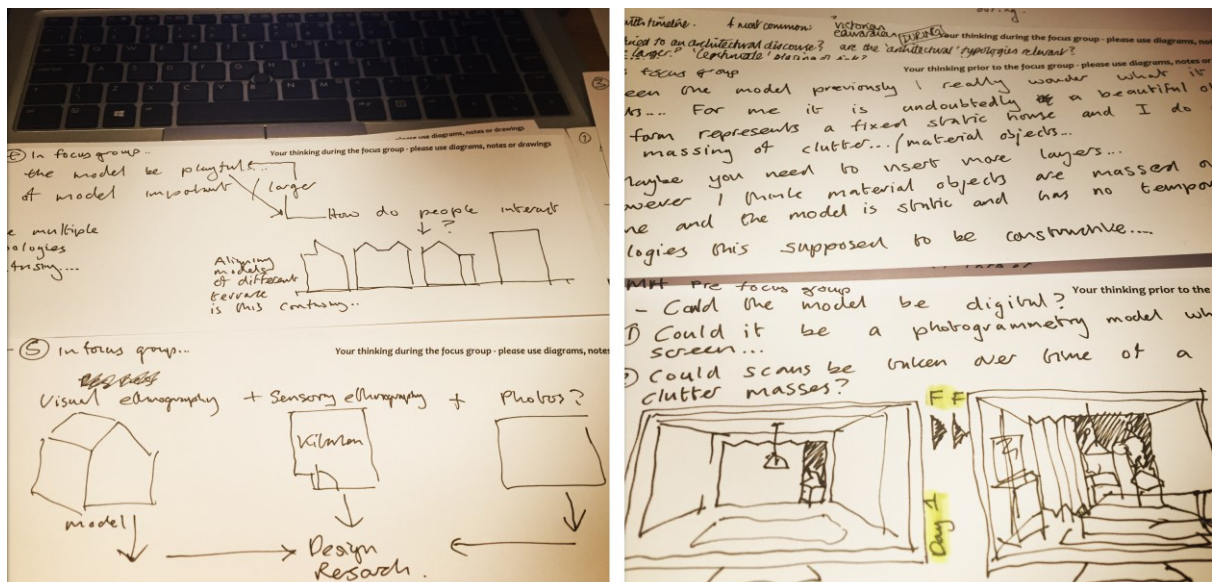 please use diagrams, notes or drawings
In focus group..
Your thinking during the focus group - please use diagrams, notes or drawings
①
the model be playful..
of model important / larger
How do people interact
?
e multiple
ologies
Aligning
models
of different
terrace
is this confusing..
⑤ In focus group...
Your thinking during the focus group - please use diagrams, notes
Visual ethnography + Sensory ethnography + Photos?
Kitchen
model
Design
Research.
with timeline. 4 most common Victorian
Edwardian
DURING
Your thinking during the focus group - please use diagrams, not
to an architectural discourse? are the 'architectural' typologies relevant?
larger? 'legitimate'
focus group
Your thinking prior to the focus group - please use diagrams, notes or
een the model previously I really wonder what it
For me it is undoubtedly a beautiful o
form represents a fixed static house and I do
massing of clutter.../material objects...
Maybe you need to insert more layers...
owever I think material objects are massed o
me and the model is static and has no tempo
logies this supposed to be constructive....
Pre focus group
Your thinking prior to the
- Could the model be digital?
① Could it be a photogrammetry model wh
screen...
Could scans be taken over time of a
clutter masses?
F F
Day 1